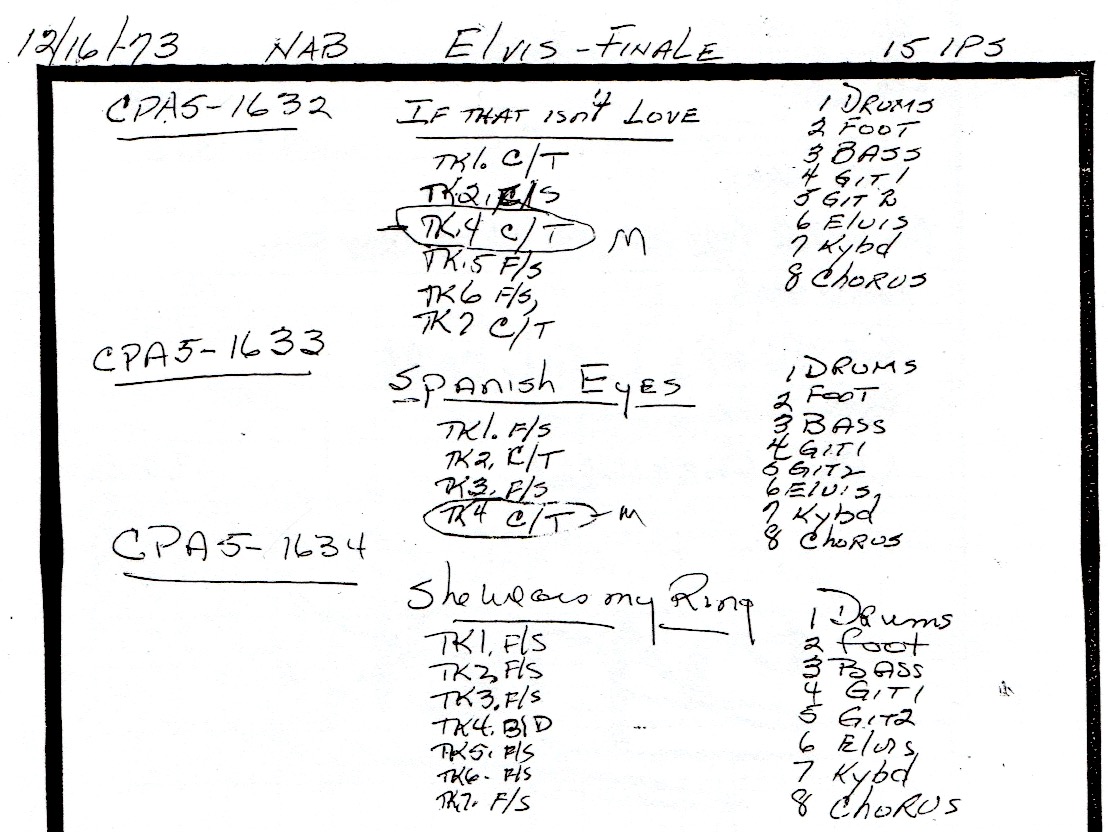 12/16/-73 NAB Elvis - FINALE 15 IPS
CPA5-1632
IF THAT isn't LOVE
TK1. C/T
TK2. F/S
TK.4 C/T M
TK.5 F/S
TK6 F/S,
TK7 C/T
1 DRUMS
2 FOOT
3 BASS
4 GIT 1
5 GIT 2
6 Elvis
7 Kybd
8 ChORUS
CPA5-1633
Spanish Eyes
TK1. F/S
TK2. C/T
TK3. F/S
TK4 C/T - M
1 DRUMS
2 FOOT
3 BASS
4 GIT1
5 GIT2
6 Elvis,
7 Kybd
8 ChORUS
CPA5-1634
She wears my Ring
TK1. F/S
TK2, F/S
TK3. F/S
TK4. B/D
TK5. F/S
TK6. F/S
TK7. F/S
1 Drums
2 foot
3 BASS
4 GIT1
5 GIT2
6 Elvis
7 Kybd
8 ChORUS